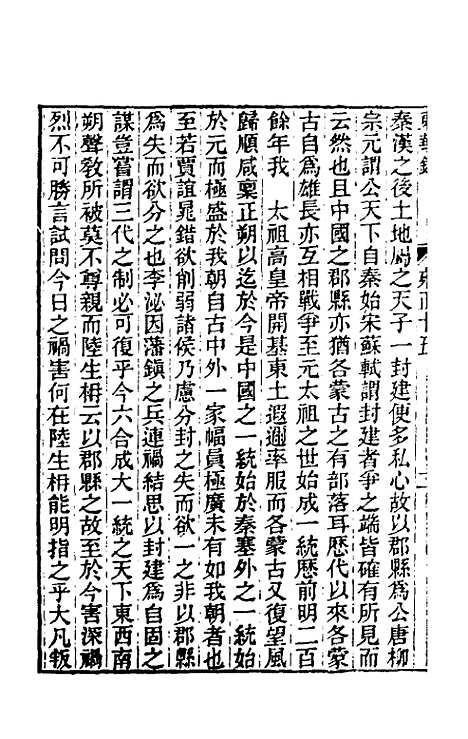 秦漢之後土地屬之天子一封建便多私心故以郡縣爲公唐柳
宗元謂公天下自秦始宋蘇軾謂封建者爭之端皆確有所見而
云然也且中國之郡縣亦猶各蒙古之有部落耳歷代以來各蒙
古自爲雄長亦互相戰爭至元太祖之世始成一統歷前明二百
餘年我 太祖高皇帝開基東土遐邇率服而各蒙古又復望風
歸順咸稟正朔以迄於今是中國之一統始於秦塞外之一統始
於元而極盛於我朝自古中外一家幅員極廣未有如我朝者也
至若賈誼晁錯欲削弱諸侯乃慮分封之失而欲一之非以郡縣
爲失而欲分之也李泌因藩鎮之兵連禍結思以封建爲自固之
謀豈嘗謂三代之制必可復乎今六合成大一統之天下東西南
朔聲教所被莫不尊親而陸生枏云以郡縣之故至於今害深禍
烈不可勝言試問今日之禍害何在陸生枏能明指之乎大凡叛